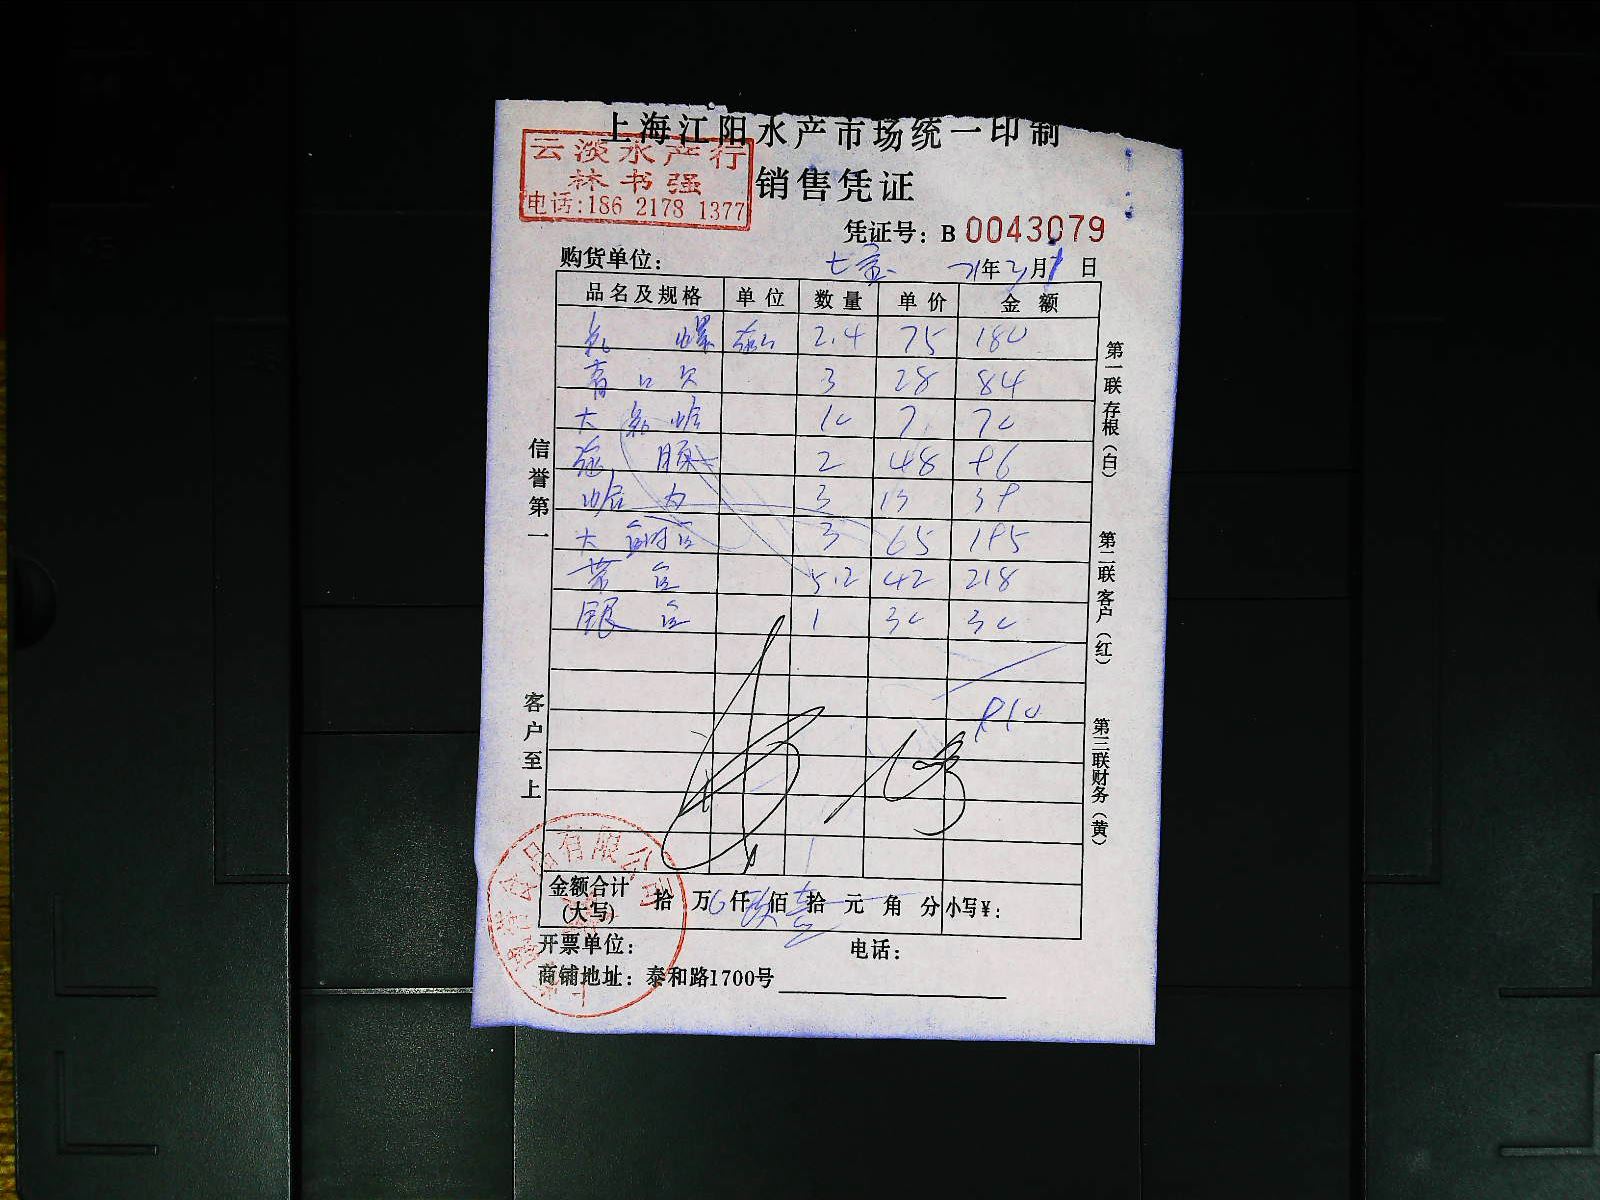 上海江阳水产市场统一印制
云淡水产行
林书强
电话:186 2178 1377
销售凭证
凭证号: B 0043079
购货单位: 七宝 21年3月 日
品名及规格 单位 数量 单价 金额
2.4 75 180
青口贝 3 28 84
大 蛤 10 7 70
2 48 96
蛤 3 13 39
大 3 65 195
5.2 42 218
银 1 30 30
910
金额合计(大写) 拾 万 仟 佰 拾 元 角 分 小写¥:
开票单位: 电话:
商铺地址: 泰和路1700号
信誉第一
客户至上
第一联 存根(白)
第二联 客户(红)
第三联 财务(黄)
食品有限公司